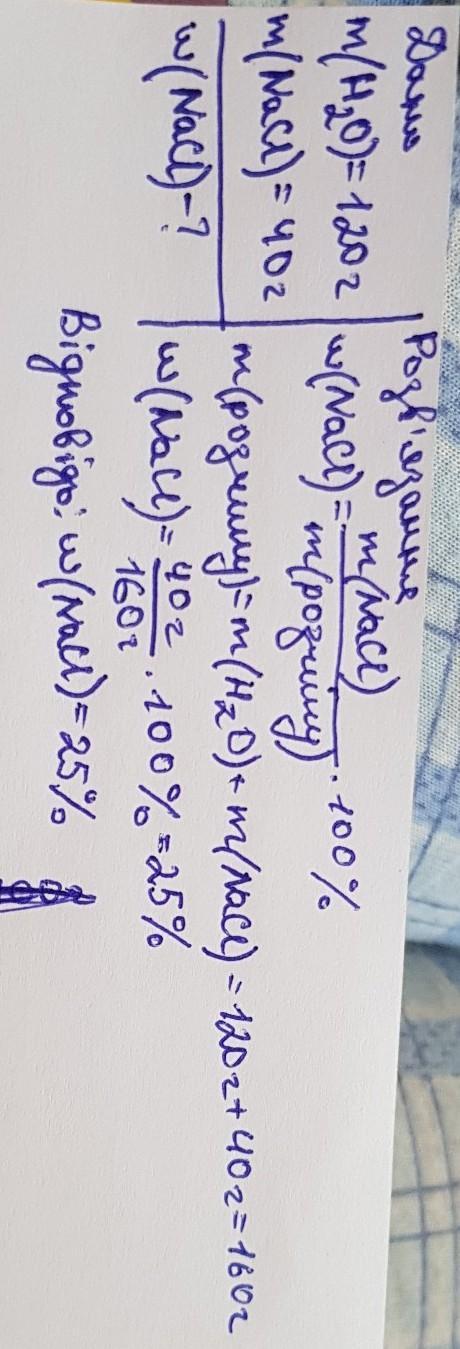 Дано
m(H₂O)=120г
m(NaCl)=40г
w(NaCl)-?
Розв'язання
w(NaCl)= m(NaCl)/m(розчину) · 100%
m(розчину)=m(H₂O)+m(NaCl)=120г+40г=160г
w(NaCl)= 40г/160г · 100%=25%
Відповідь: w(NaCl)=25%